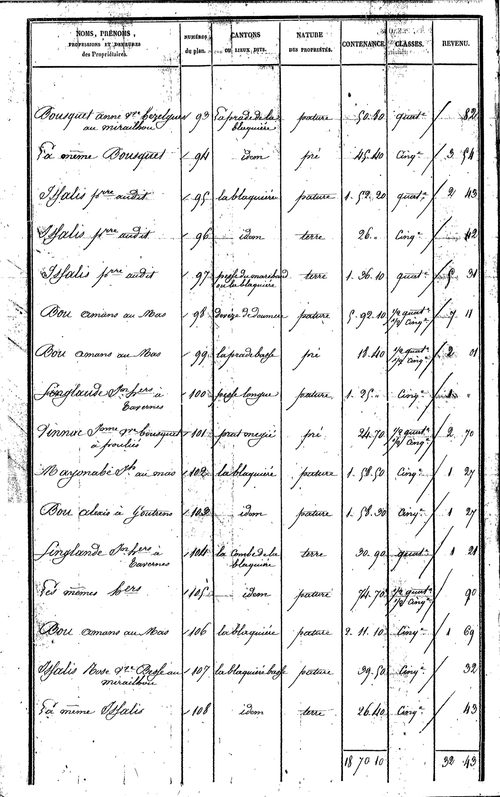 NOMS, PRÉNOMS, PROFESSIONS ET DEMEURES des Propriétaires. NUMÉROS du plan. CANTONS OU LIEUX DITS. NATURE DES PROPRIÉTÉS. CONTENANCE. CLASSES. REVENU.
Bousquet anne 93 la prade de la blaquière pature 50.80 quatr.e 82
au mirailhou
La même Bousquet 94 idem pré 45.40 Cinq.e 3 54
Issalis p.rre audit 95 la blaquière pature 1.52.20 quatr.e 2 43
Issalis p.rre audit 96 idem terre 26." Cinq.e 42
Issalis p.rre audit 97 ou la blaquière terre 1.36.10 quatr.e 5 31
Bou amans au Mas 98 pature 5.92.10 1/2 quatr.e 1/2 Cinq.e 7 11
Bou amans au Mas 99 la prade basse pré 18.40 1/2 quatr.e 1/2 Cinq.e 2 01
Linglande h.ers à Tavernes 100 longue pature 1.25." Cinq.e 1 "
101 pré 24.70 1/2 quatr.e 1/2 Cinq.e 2 70
Mayonabé au mas 102 la blaquière pature 1.58.50 Cinq.e 1 27
Bou alexis à 103 idem pature 1.58.30 Cinq.e 1 27
Linglande h.ers à Tavernes 104 la Combe de la blaquière terre 30.90 quatr.e 1 21
Les mêmes h.ers 105 idem pature 74.70 1/2 quatr.e 1/2 Cinq.e 90
Bou amans au Mas 106 la blaquière pature 2.11.10 Cinq.e 1 69
Issalis Rose au mirailhou 107 la blaquière basse pature 39.50 Cinq.e 32
La même Issalis 108 idem terre 26.40 Cinq.e 43
18 70 10 32 43